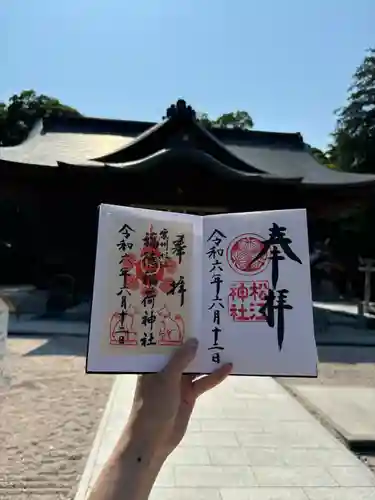 奉拝
松江
神社
令和六年六月十二日
奉拝
稲荷神社
令和六年六月十二日